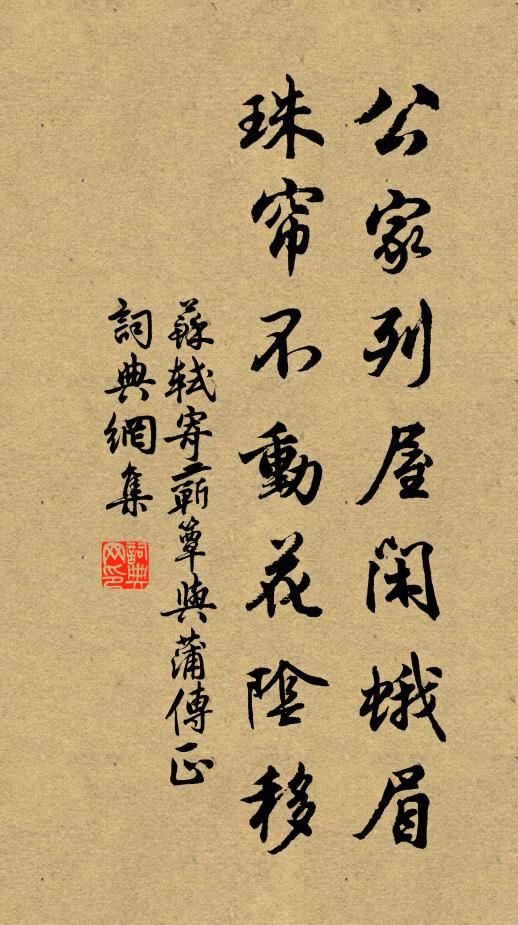 公家列屋閑蛾眉
珠帘不動花陰移
蘇軾寄蘄簟與蒲傳正
詞典網集
詞典網印